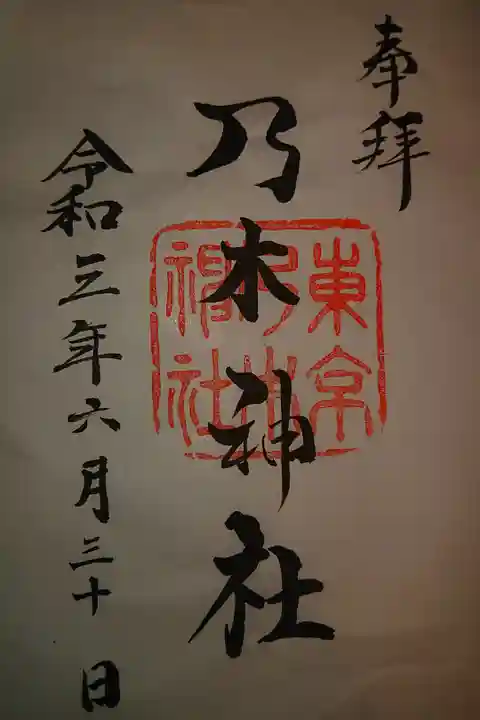 奉拝
乃木神社
東京
乃木
神社
令和三年六月三十日